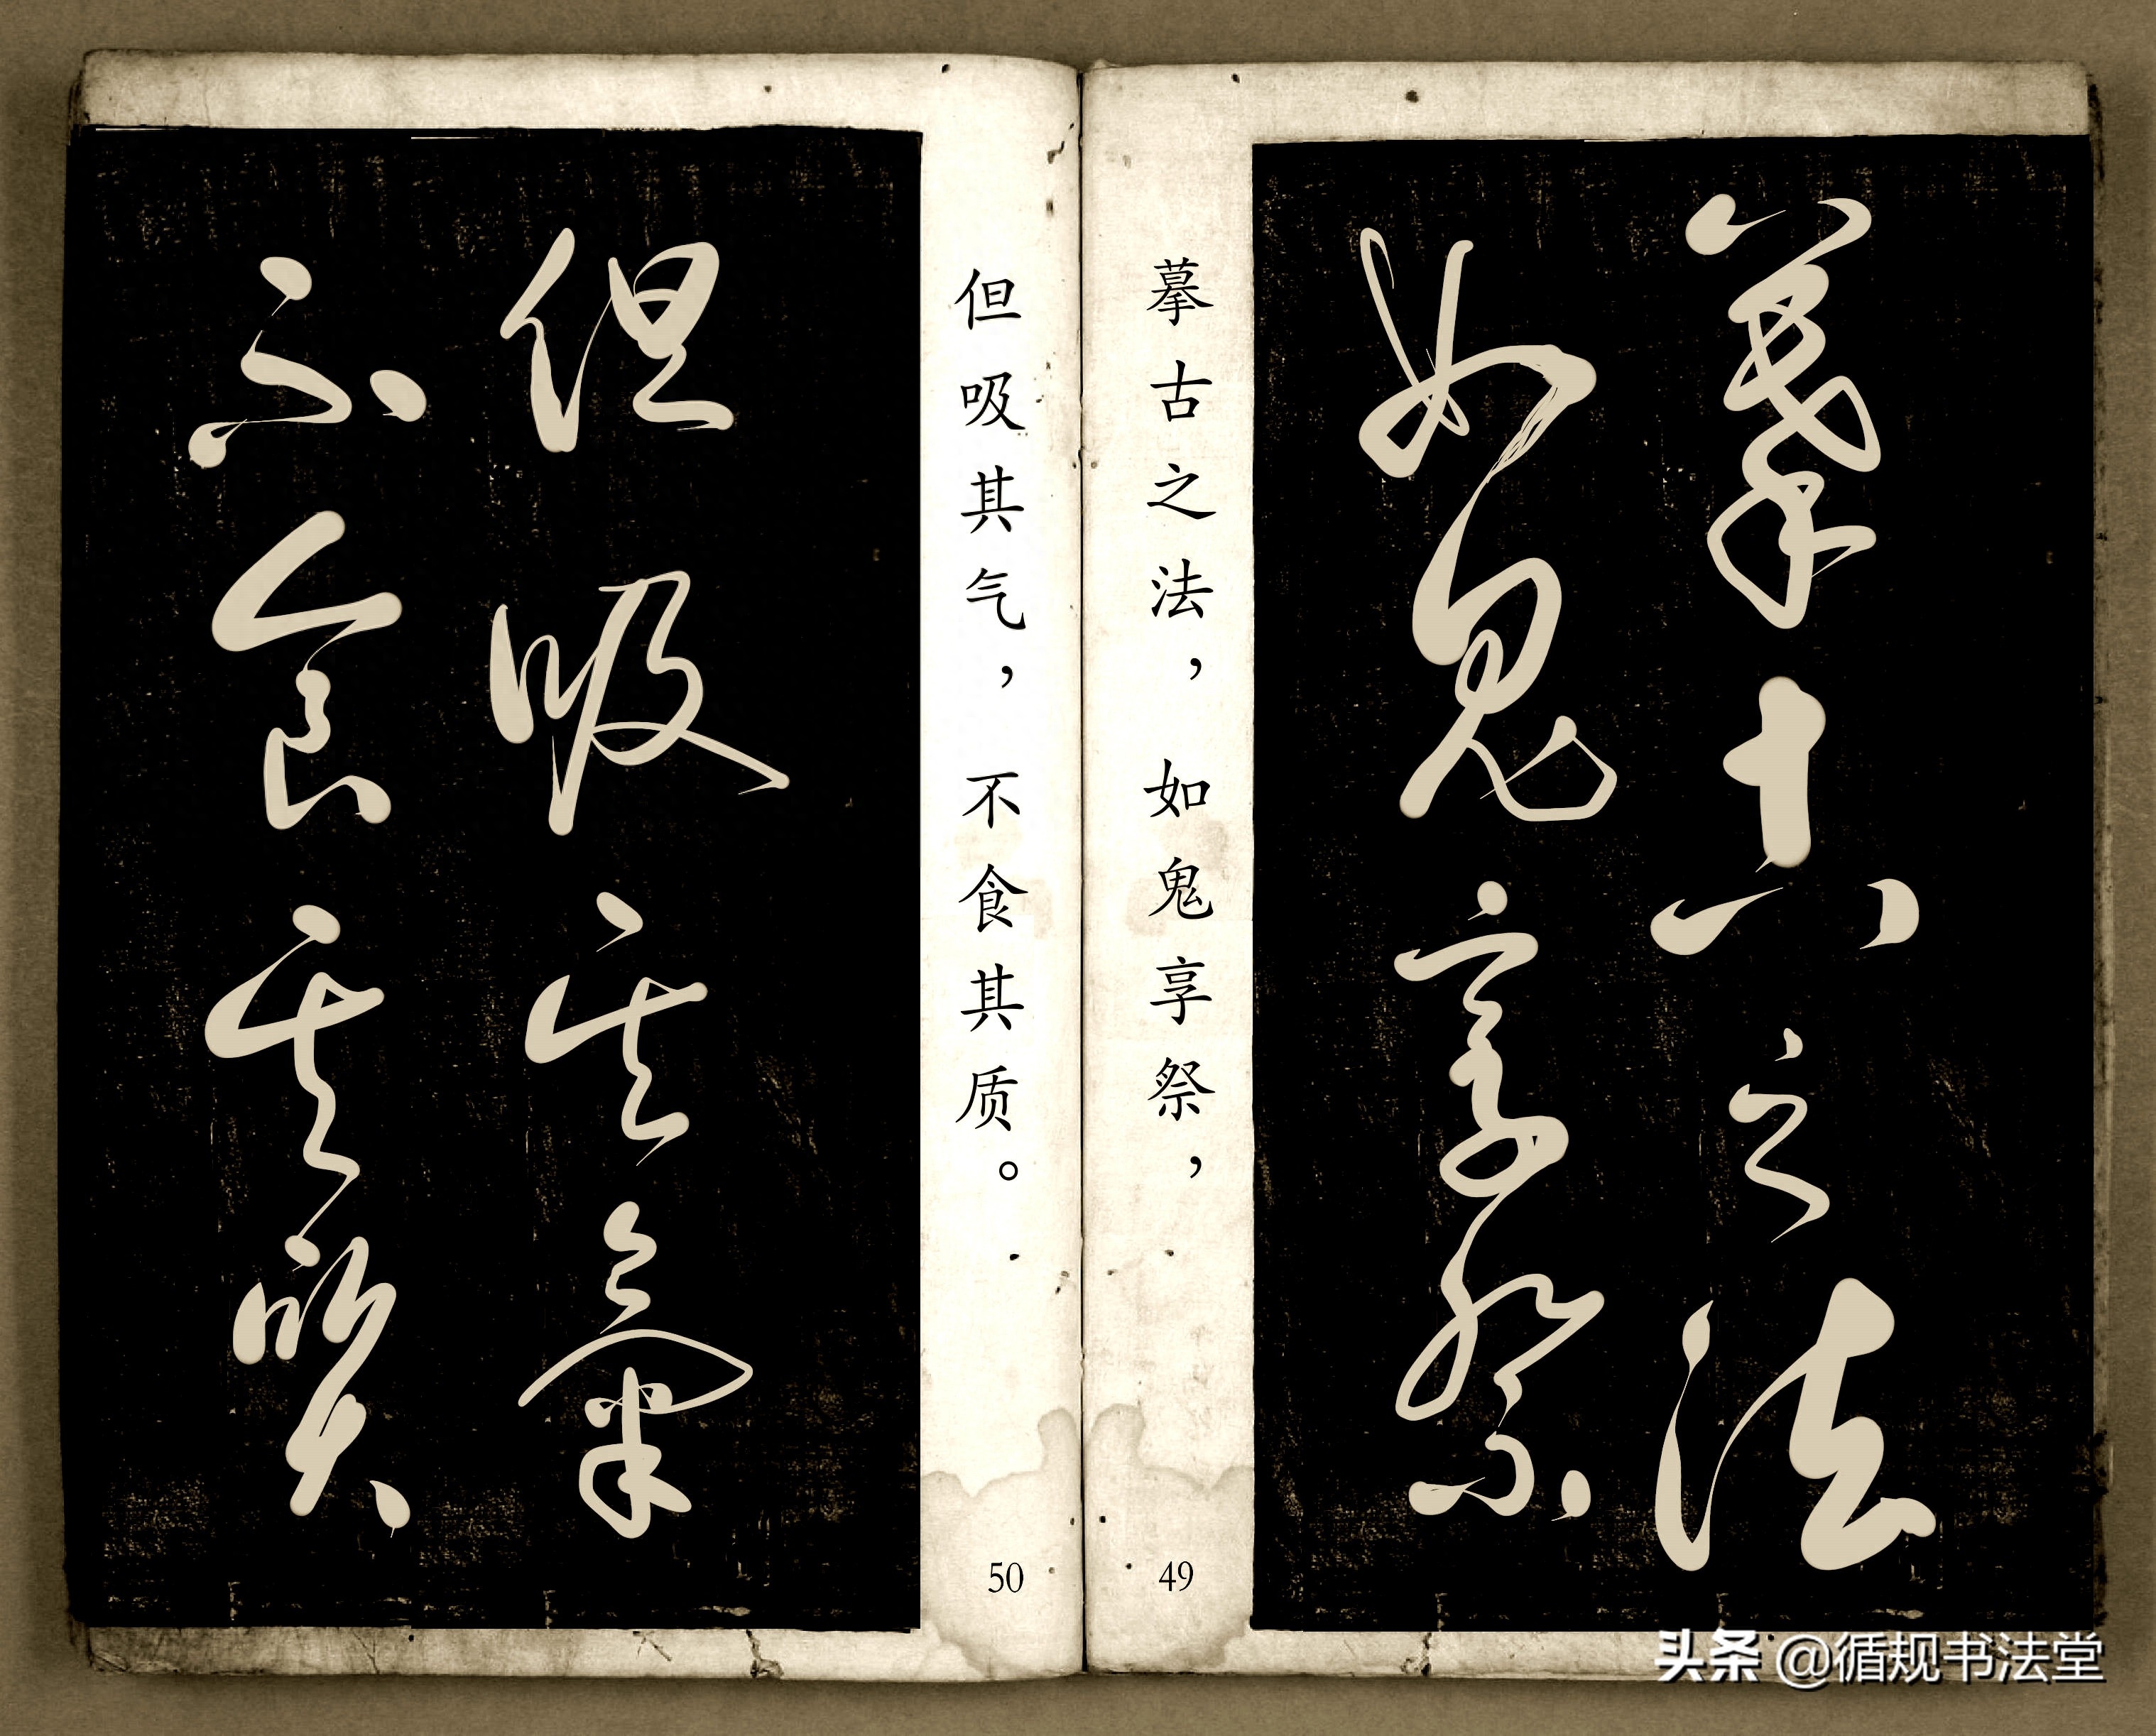 摹古之法
如鬼享祭
摹古之法，如鬼享祭，
49
但吸其氣
不食其質
但吸其气，不食其质。
50
头条 @循规书法堂